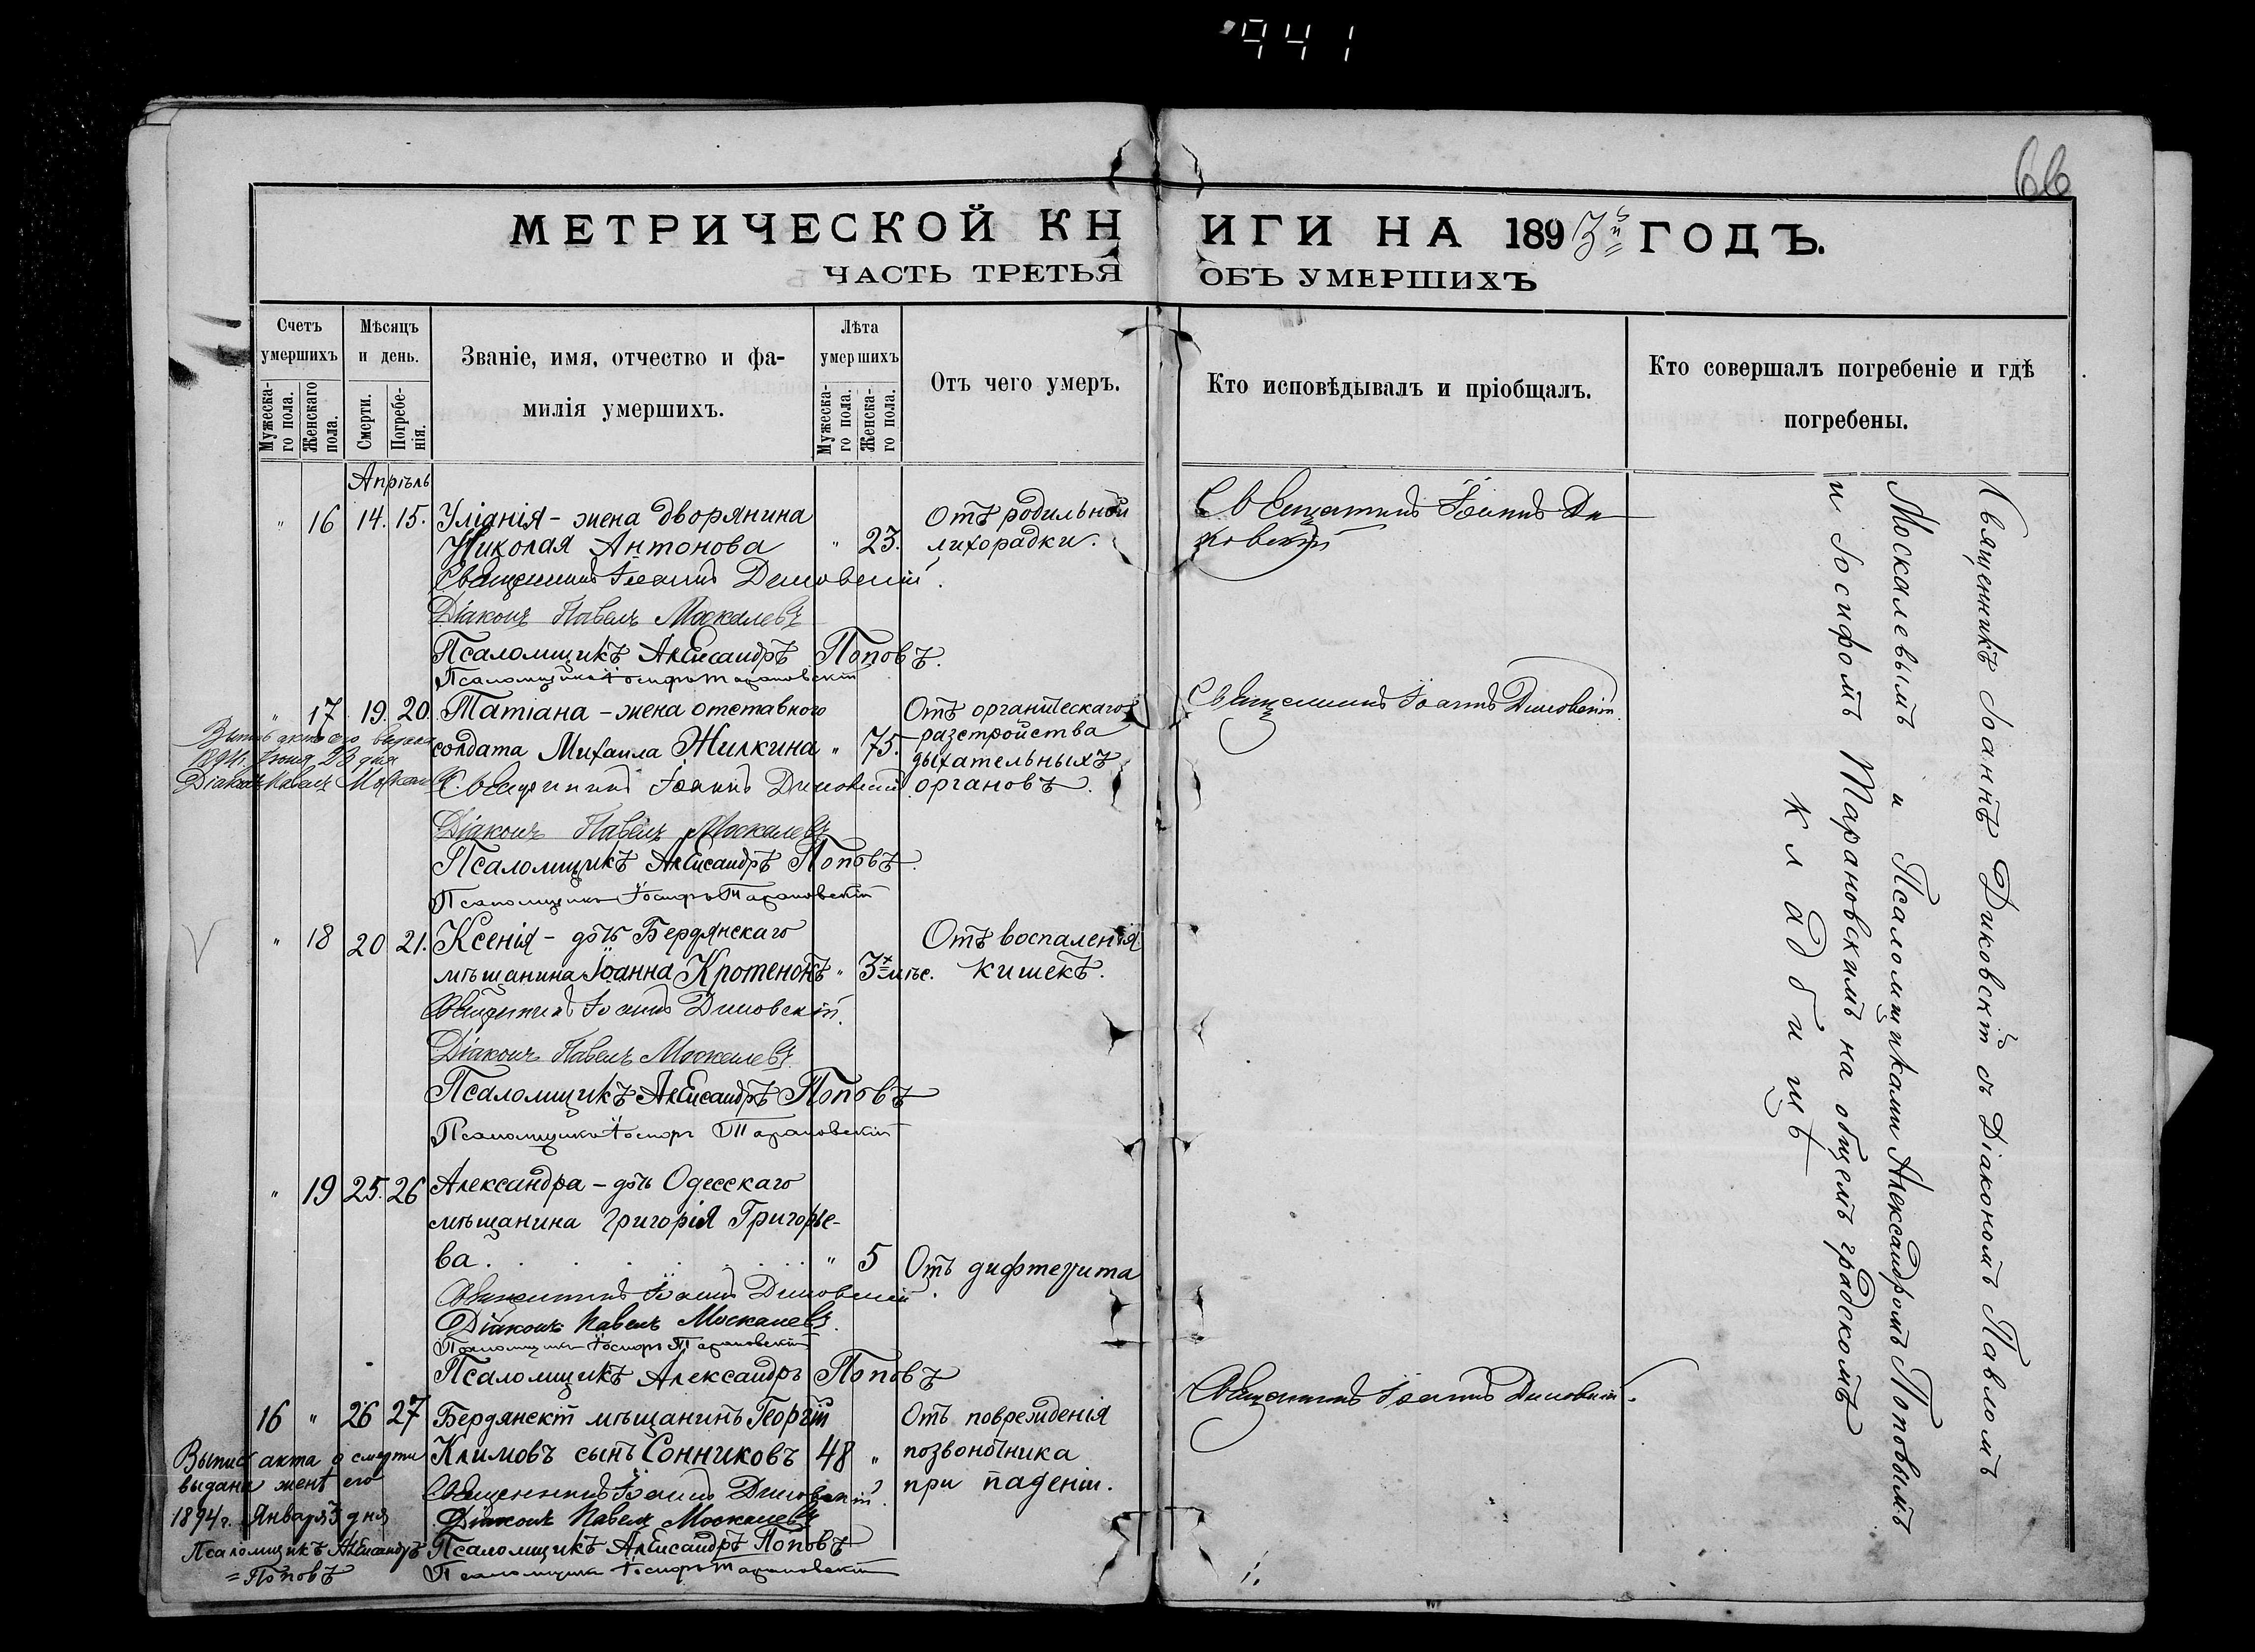 941
66
МЕТРИЧЕСКОЙ КНИГИ НА 1893й ГОДЪ.
ЧАСТЬ ТРЕТЬЯ ОБЪ УМЕРШИХЪ
Счетъ умершихъ
Мужеска-го пола.
Женскаго пола.
Мѣсяцъ и день.
Смерти.
Погребе-нія.
Званіе, имя, отчество и фа-
милія умершихъ.
Лѣта умершихъ
Мужеска-го пола.
Женска-го пола.
Отъ чего умеръ.
Кто исповѣдывалъ и пріобщалъ.
Кто совершалъ погребеніе и гдѣ
погребены.
Апрѣль
" 16 14. 15. Уліанія - жена дворянина
Николая Антонова " 23.
Отъ родильной
лихорадки.
Священникъ Іоаннъ Ди
ковскій
Священникъ Іоаннъ Диковскій.
Діаконъ Павелъ Москалевъ
Псаломщикъ Александръ Поповъ.
Псаломщикъ Іосифъ Тарановскій
" 17 19. 20. Татіана - жена отставного
солдата Михаила Жилкина " 75.
Отъ органическаго
разстройства
дыхательныхъ
органовъ.
Священникъ Іоаннъ Диковскій.
1894г. Іюня 23 дня
Діаконъ Павелъ Москалевъ
Священникъ Іоаннъ Диковскій
Діаконъ Павелъ Москалевъ
Псаломщикъ Александръ Поповъ.
Псаломщикъ Іосифъ Тарановскій
" 18 20 21. Ксенія - дочь Бердянскаго
мѣщанина Іоанна Кротенокъ " 3х мѣс.
Отъ воспаленія
кишекъ.
Священникъ Іоаннъ Диковскій.
Діаконъ Павелъ Москалевъ
Псаломщикъ Александръ Поповъ
Псаломщикъ Іосифъ Тарановскій
" 19 25. 26 Александра - дочь Одесскаго
мѣщанина Григорія Григорье-
ва . . . . . . . " 5 Отъ дифтерита
Священникъ Іоаннъ Диковскій.
Діаконъ Павелъ Москалевъ.
Псаломщикъ Іосифъ Тарановскій
Псаломщикъ Александръ Поповъ
16 " 26 27 Бердянскій мѣщанинъ Георгій
Климовъ сынъ Сонниковъ 48 "
Отъ поврежденія
позвоночника
при паденіи.
Священникъ Іоаннъ Диковскій.
Выпись акта о смерти
выдана женѣ его
1894г. Января 3 дня
Псаломщикъ Александръ
=Поповъ
Священникъ Іоаннъ Диковскій.
Діаконъ Павелъ Москалевъ
Псаломщикъ Александръ Поповъ
Псаломщикъ Іосифъ Тарановскій
Священникъ Іоаннъ Диковскій съ Діакономъ Павломъ
Москалевымъ и Псаломщиками Александромъ Поповымъ
и Іосифомъ Тарановскимъ на общемъ градскомъ
кладбищѣ